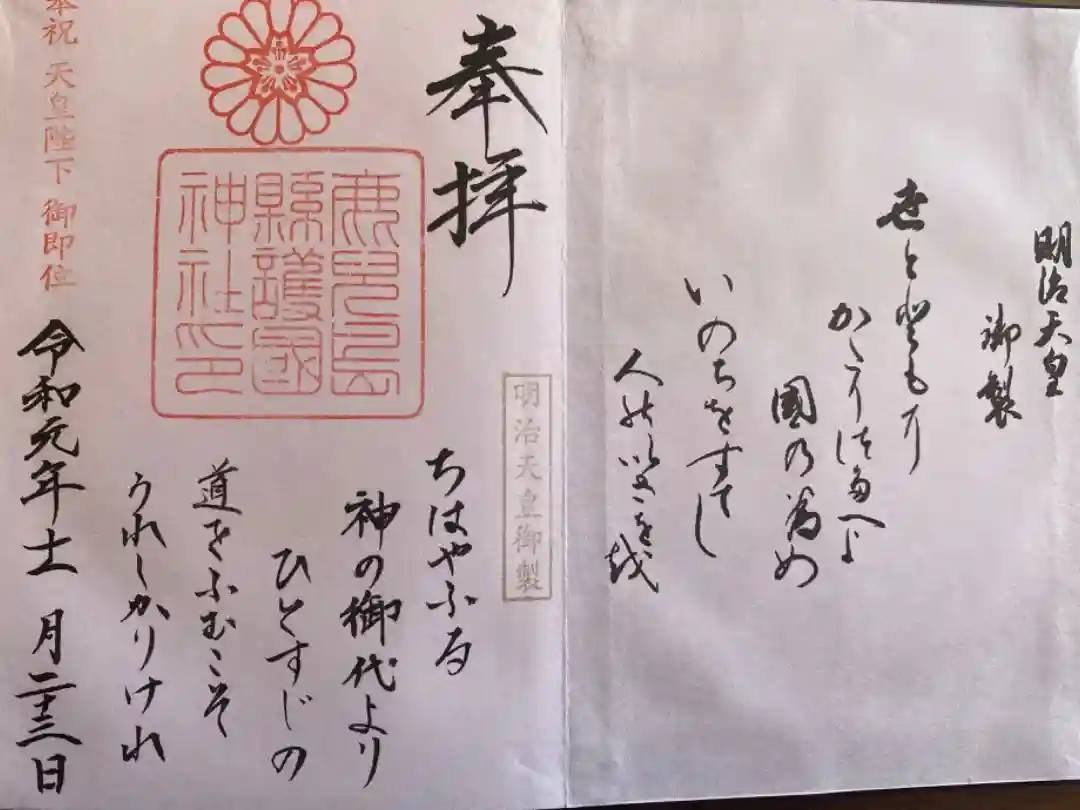 明治天皇
御製
世と登もに
かたり徒多へよ
國乃為め
いのちをすてし
人能以さを越
奉拝
明治天皇御製
ちはやふる
神の御代より
ひとすじの
道をふむこそ
うれしかりけれ
鹿児島
縣護國
神社印
奉祝 天皇陛下 御即位
令和元年十一月二十三日